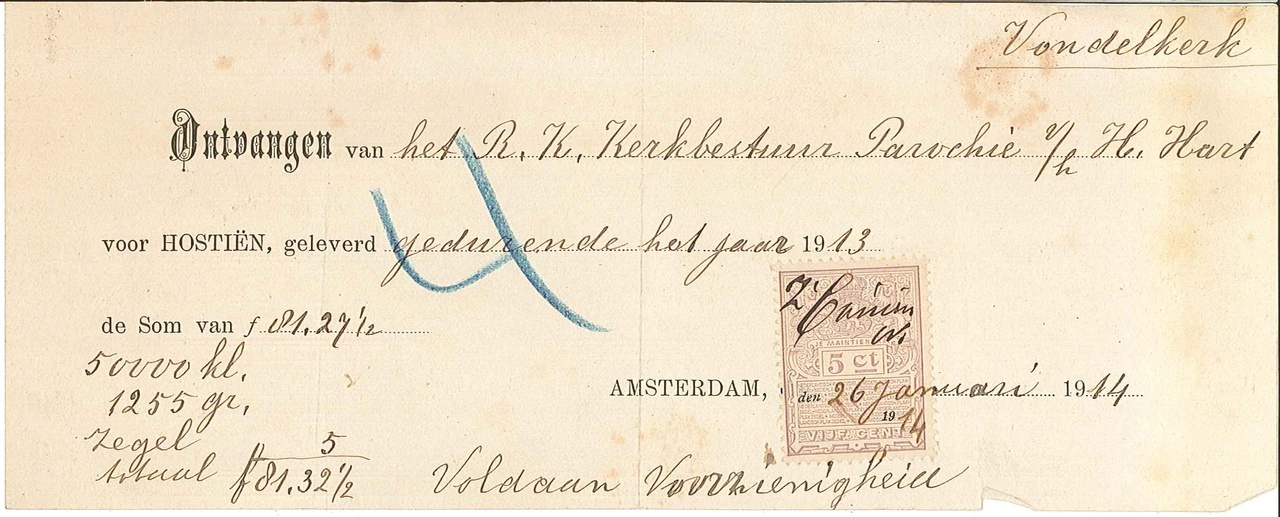 Vondelkerk
Ontvangen van het R. K. Kerkbestuur Parochie v/h H. Hart
4
voor HOSTIËN, geleverd gedurende het jaar 1913
de Som van f 81.27½
50000 kl.
1255 gr.
Zegel 5
totaal f 81.32½
JE MAINTIENDRAI
5 ct
AMSTERDAM, den 26 Januari 1914
1914
VIJF CENT
Voldaan Voorzienigheid